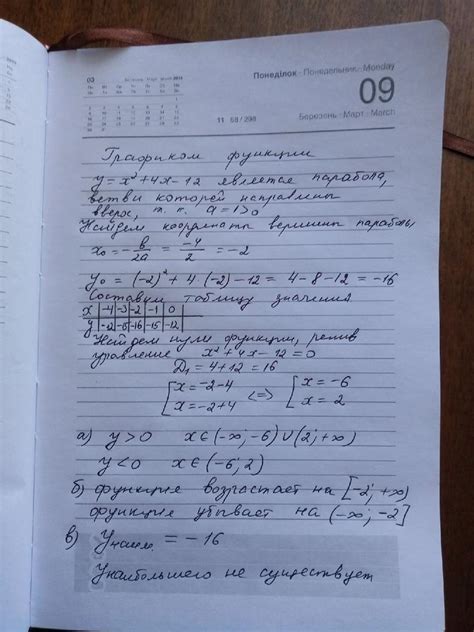 03
Понеділок · Понедельник · Monday
09
11 68 / 298
Березень · Март · March
Графиком функции
y = x² + 4x - 12 является парабола,
ветви которой направлены
вверх, т. к. a = 1 > 0
Найдем координаты вершины параболы
x₀ = - b/2a = -4/2 = -2
y₀ = (-2)² + 4·(-2) - 12 = 4 - 8 - 12 = -16
Составим таблицу значений
x | -4 | -3 | -2 | -1 | 0
y | -12 | -15 | -16 | -15 | -12
Найдем нули функции, решив
уравнение x² + 4x - 12 = 0
D₁ = 4 + 12 = 16
[ x = -2 - 4 <=> [ x = -6
[ x = -2 + 4 [ x = 2
а) y > 0 x ∈ (-∞; -6) ∪ (2; +∞)
y < 0 x ∈ (-6; 2)
б) функция возрастает на [-2; +∞)
функция убывает на (-∞; -2]
в) yнаим. = -16
yнаибольшего не существует